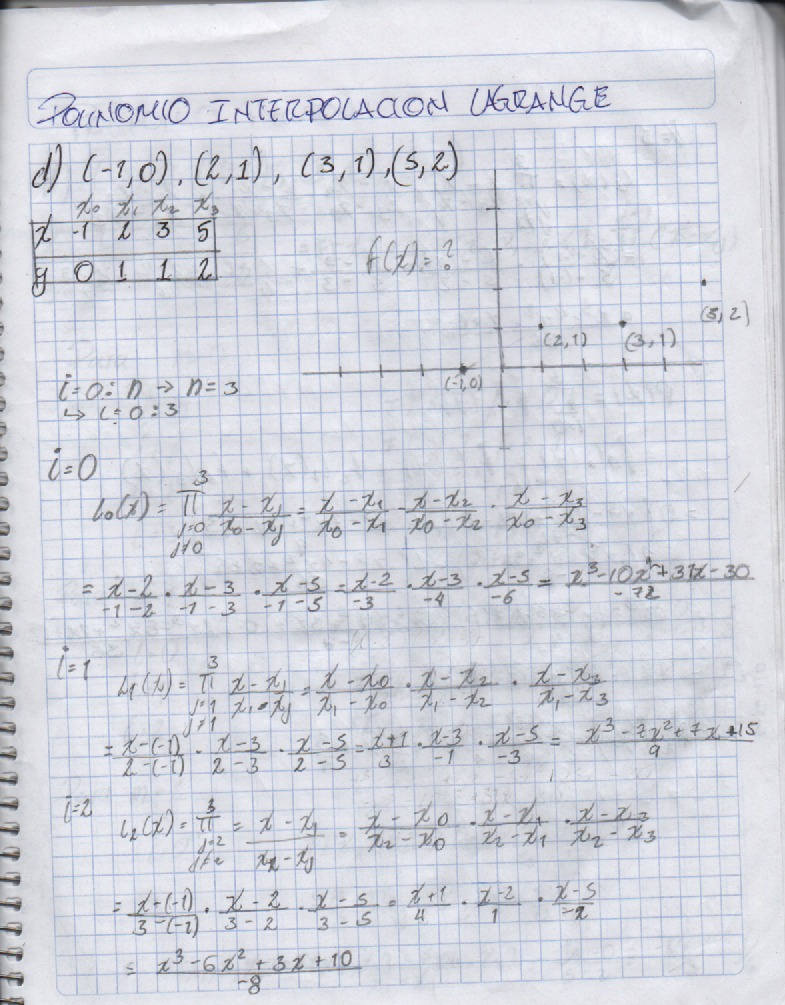 POLINOMIO INTERPOLACION LAGRANGE
d) (-1,0), (2,1), (3,1), (5,2)
x₀ x₁ x₂ x₃
x -1 2 3 5
y 0 1 1 2
f(x)=?
(5,2)
(2,1) (3,1)
(-1,0)
i=0:n → n=3
↳ i=0:3
i=0
L₀(x) = 3 π j=0 j≠0 x-xj/x₀-xj = x-x₁/x₀-x₁ · x-x₂/x₀-x₂ · x-x₃/x₀-x₃
= x-2/-1-2 · x-3/-1-3 · x-5/-1-5 = x-2/-3 · x-3/-4 · x-5/-6 = x³-10x²+31x-30/-72
i=1
L₁(x) = 3 π j=1 j≠1 x-xj/x₁-xj = x-x₀/x₁-x₀ · x-x₂/x₁-x₂ · x-x₃/x₁-x₃
= x-(-1)/2-(-1) · x-3/2-3 · x-5/2-5 = x+1/3 · x-3/-1 · x-5/-3 = x³-7x²+7x+15/9
i=2
L₂(x) = 3 π j=2 j≠2 = x-xj/x₂-xj = x-x₀/x₂-x₀ · x-x₁/x₂-x₁ · x-x₃/x₂-x₃
= x-(-1)/3-(-1) · x-2/3-2 · x-5/3-5 = x+1/4 · x-2/1 · x-5/-2
= x³-6x²+3x+10/-8